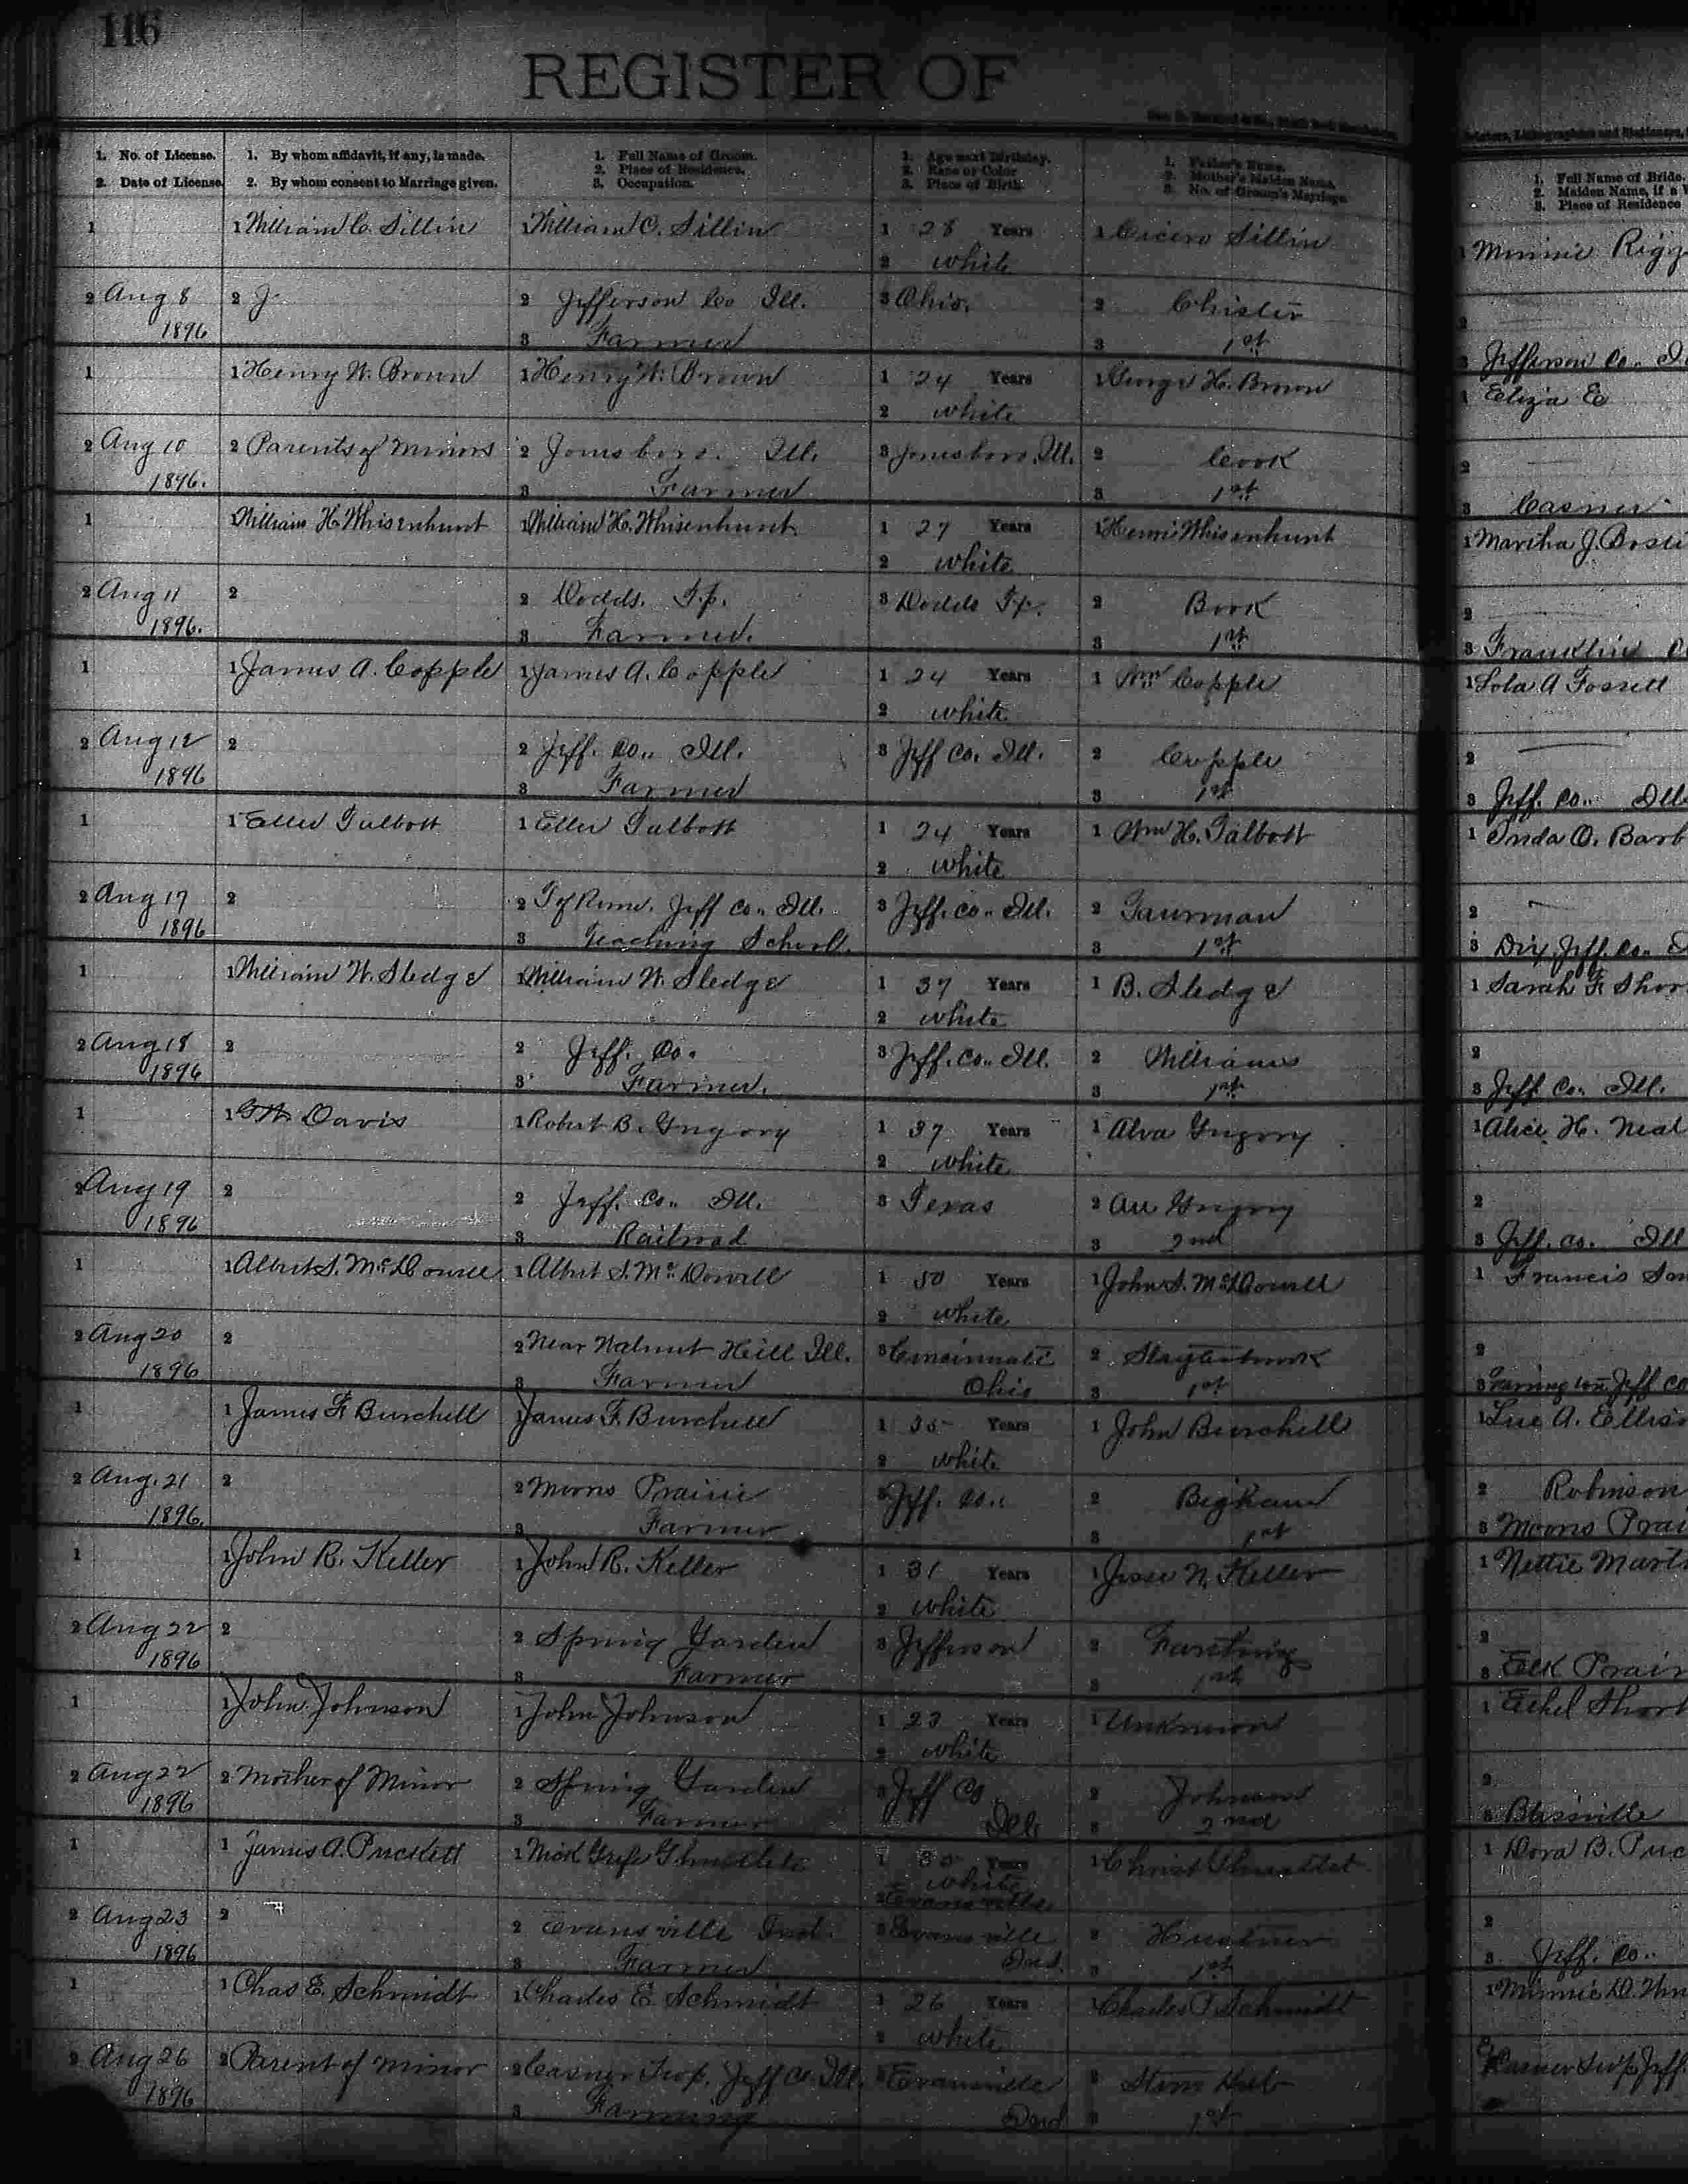 116
REGISTER OF
1. No. of License.
2. Date of License.
1. By whom affidavit, if any, is made.
2. By whom consent to Marriage given.
1. Full Name of Groom.
2. Place of Residence.
3. Occupation.
1. Age next Birthday.
2. Race or Color
3. Place of Birth.
1. Father's Name.
2. Mother's Maiden Name.
3. No. of Groom's Marriage
1. Full Name of Bride.
2. Maiden Name, if a W
3. Place of Residence
1 1 William C. Sillin 1 William C. Sillin 1 28 Years 1 Cicero Sillin 1 Minnie Rigg
2 white
2 Aug 8 2 J 2 Jefferson Co Ill. 3 Ohio. 2 Chister 2
1896 3 Farmer 3 1st 3 Jefferson Co.
1 1 Henry W. Brown 1 Henry W. Brown 1 24 Years 1 George H. Brown 1 Eliza E
2 white
2 Aug 10 2 Parents of Minors 2 Jonesboro. Ill. 3 Jonesboro, Ill. 2 Cook 2
1896. 3 Farmer 3 1st 3 Casner
1 1 William H. Whisenhunt 1 William H. Whisenhunt 1 27 Years 1 Whisenhunt 1 Martha J. Boste
2 white
2 Aug 11 2 2 Dodds. T.p. 3 Dodds T.p. 2 Book 2
1896. 3 Farmer. 3 1st 3 Franklin
1 1 James A. Copple 1 James A. Copple 1 24 Years 1 Wm Copple 1 Lola A Fossett
2 white
2 Aug 12 2 2 Jeff. Co.. Ill. 3 Jeff Co. Ill. 2 Copple 2
1896 3 Farmer 3 1st 3 Jeff. Co.. Ill
1 1 Eller Talbott 1 Eller Talbott 1 24 Years 1 Wm H. Talbott 1 Inda O. Barb
2 white
2 Aug 17 2 2 Jeff Co.. Ill. 3 Jeff. Co.. Ill. 2 Gaurman 2
1896 3 Teaching School. 3 1st 3 Dix, Jeff. Co..
1 1 William W. Sledge 1 William W. Sledge 1 37 Years 1 B. Sledge 1 Sarah F. Shor
2 white
2 Aug 18 2 2 Jeff. Co. 3 Jeff. Co.. Ill. 2 Williams 2
1896 3 Farmer. 3 1st 3 Jeff Co. Ill.
1 1 Davis 1 Robert B. Gregory 1 37 Years 1 Alva Gregory 1 Alice H. Neal
2 white
2 Aug 19 2 2 Jeff. Co.. Ill. 3 Texas 2 Gregory 2
1896 3 Railroad 3 2nd 3 Jeff. Co. Ill
1 1 Albert S. McDowell 1 Albert S. McDowell 1 50 Years 1 John S. McDowell 1 Francis
2 white
2 Aug 20 2 2 Near Walnut Hill Ill. 3 Cincinnati 2 2
1896 3 Farmer Ohio 3 1st 3 Jeff Co
1 1 James F. Burchell 1 James F. Burchell 1 35 Years 1 John Burchell 1 Sue A. Ellis
2 white
2 Aug. 21 2 2 Moors Prairie 3 Jeff. Co.. 2 Bigham 2 Robinson
1896. 3 Farmer 3 1st 3 Moors Prai
1 1 John R. Keller 1 John R. Keller 1 31 Years 1 Jesse N. Keller 1 Nettie Mart
2 white
2 Aug 22 2 2 Spring Garden 3 Jefferson 2 2
1896 3 Farmer 3 1st 3 Elk Prair
1 1 John Johnson 1 John Johnson 1 23 Years 1 Unknown 1 Ethel Short
2 white
2 Aug 22 2 Mother of Minor 2 Spring Garden 3 Jeff Co 2 Johnson 2
1896 3 Farmer Ill. 3 2nd 3
1 1 James A. Puckett 1 Nick 1 Years 1 Christ 1 Dora B. Puc
white
2 Evansville
2 Aug 23 2 2 Evansville Ind. 3 Evansville 2 2
1896 3 Farmer Ind. 3 1st 3. Jeff. Co..
1 1 Chas E. Schmidt 1 Charles E. Schmidt 1 26 Years 1 Charles Schmidt 1 Minnie D.
2 white
2 Aug 26 2 Parent of Minor 2 Casner Twp. Jeff Co. Ill. 3 Evansville 2 Casner Twp Jeff.
1896 3 Farming 3 1st